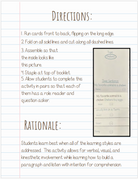 Directions:
1. Run cards front to back, flipping on the long edge
2. Fold on all solid lines and cut along all dashed lines
3. Assemble so that
the inside looks like
the picture.
4. Staple at top of booklet
5. Allow students to complete the
activity in pairs so that each of
them has a role reader and
question asker
Rationale:
Students learn best when all of the learning styles are
addressed. This activity allows for verbal, visual, and
kinesthetic movement while learning how to build a
paragraph and listen with intention for comprehension